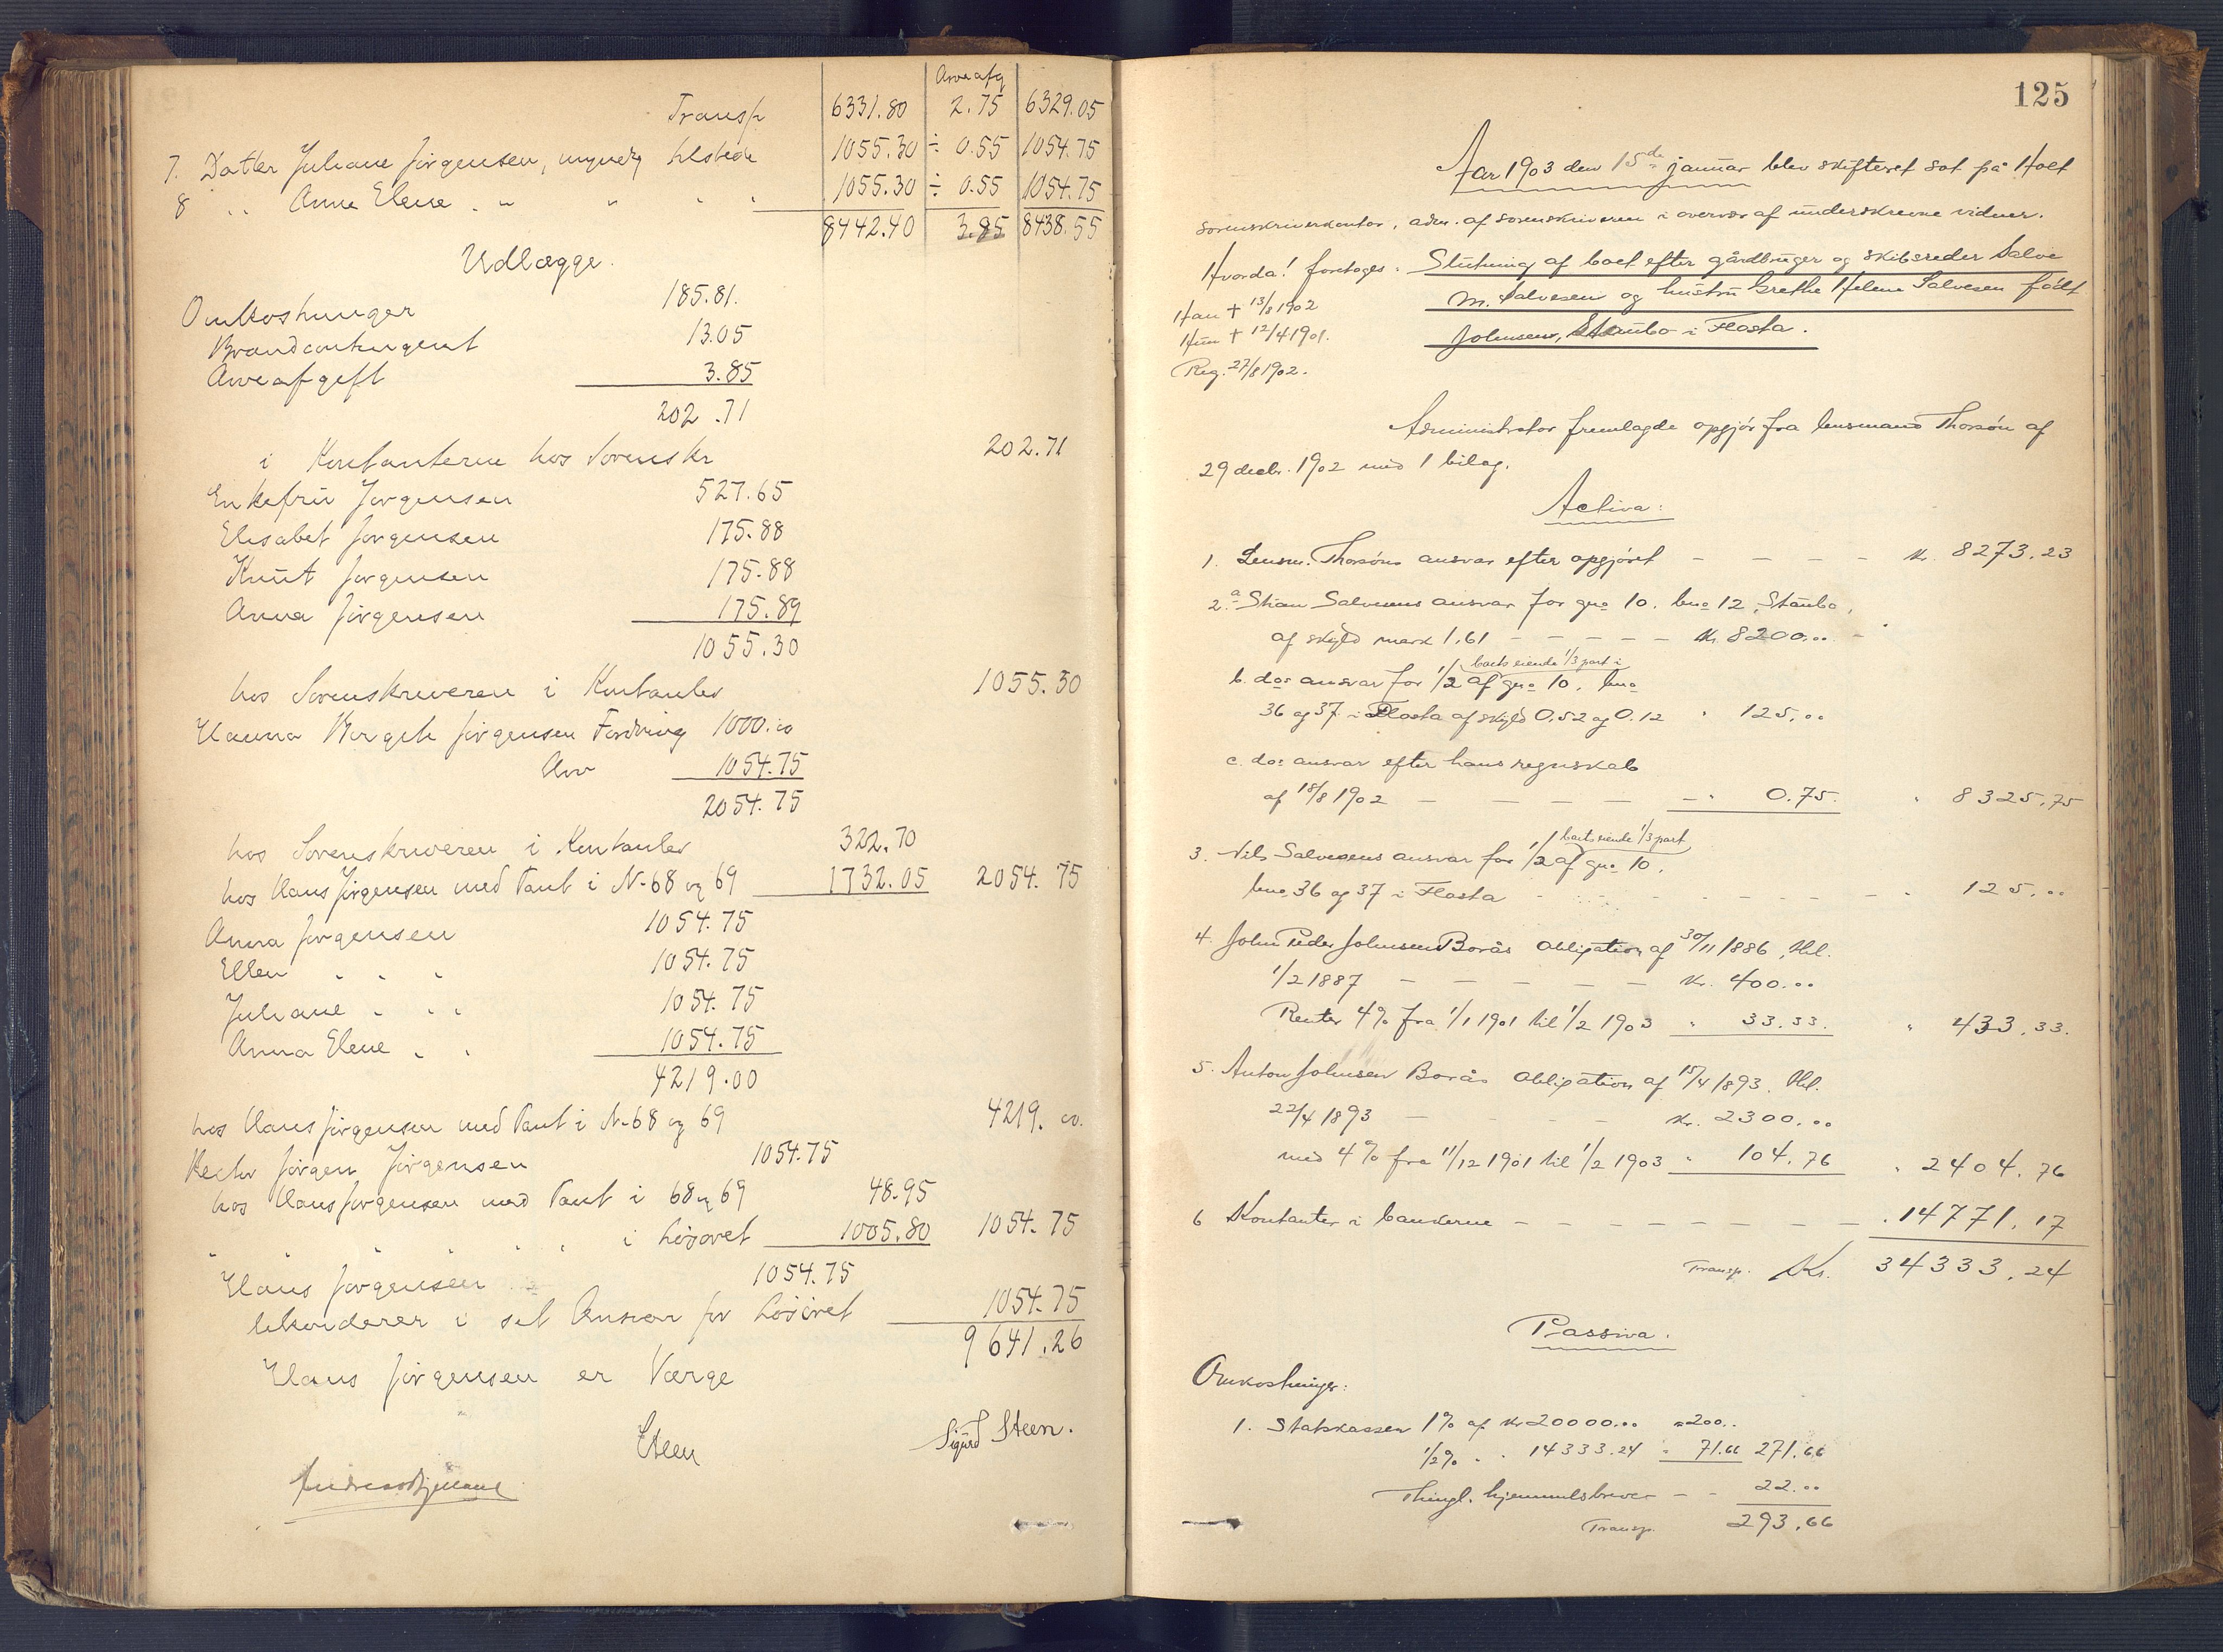 Arveafg
Transp 6331.80 2.75 6329.05
7. Datter Juliane Jørgensen, myndig tilstede 1055.30 ÷ 0.55 1054.75
8 " Anne Elene " " " " 1055.30 ÷ 0.55 1054.75
8442.40 3.85 8438.55
Udlægge.
Omkostninger 185.81.
Brandcontingent 13.05
Arveafgift 3.85
202.71
i Kontanterne hos Sorenskr 202.71
Enkefrü Jørgensen 527.65
Elisabet Jørgensen 175.88
Knüt Jørgensen 175.88
Anna Jørgensen 175.89
1055.30
hos Sorenskriveren i Kontanter 1055.30
Hanna Bergite Jørgensen Fordring 1000.00
Arv 1054.75
2054.75
hos Sorenskriveren i Kontanter 322.70
hos Hans Jørgensen med Pant i N- 68 og 69 1732.05 2054.75
Anna Jørgensen 1054.75
Ellen " " " 1054.75
Juliane " " " 1054.75
Anna Elene " " 1054.75
4219.00
hos Hans Jørgensen med Pant i N- 68 og 69 4219.00.
Rector Jørgen Jørgensen 1054.75
hos Hans Jørgensen med Pant i 68 og 69 48.95
" " " " " " i Løsøret 1005.80 1054.75
Hans Jørgensen 1054.75
likviderer i sit Ansvar for Løsøret 1054.75
9641.26
Hans Jørgensen er Værge
Steen Sigürd Steen.
125
Aar 1903 den 15de januar blev skifteret sat på Holt
sorenskriverkontor, adm. af sorenskriveren i overvær af underskrevne vidner.
Hvorda! foretoges: Slutning af boet efter gårdbruger og skibsreder Salve
M. Salvesen og hustru Grethe Helene Salvesen født
Johnsen, Staubo i Flosta.
Han † 13/8 1902
Hun † 12/4 1901.
Reg. 27/8 1902.
Administrator fremlagde opgjør fra lensmand Thorsøn af
29 decbr. 1902 med 1 bilag.
Activa:
1. Lensm. Thorsøns ansvar efter opgjøret - - - - Kr. 8273.23
2.a Stian Salvesens ansvar for gno 10. bno 12, Staubo,
af skyld mark 1.61 - - - - - Kr. 8200...
b. do: ansvar for 1/2 af boets eiende 1/3 part i gno 10. bno
36 og 37 i Flosta af skyld 0.52 og 0.12 " 125...
c. do: ansvar efter hans regnskab
af 18/8 1902 - - - - - " 0.75. " 8325.75
3. Nils Salvesens ansvar for 1/2 af boets eiende 1/3 part gno 10.
bno 36 og 37 i Flosta - - - - - - - " 125...
4. John Peder Johnsen Borås obligation af 30/11 1886, thl.
1/2 1887 - - - - - Kr. 400...
Renter 4% fra 1/1 1901 til 1/2 1903 " 33.33. " 433.33.
5. Anton Johnsen Borås obligation af 15/4 1893. thl.
22/4 1893 - - - - Kr. 2300...
med 4% fra 11/12 1901 til 1/2 1903 " 104.76 " 2404.76
6 Kontanter i bankerne - - - - - - - - . 14771.17
Transp. Kr. 34333.24
Passiva.
Omkostninger:
1. Statskassen 1% af Kr 20000... = 200..
1/2% " " 14333.24 = 71.66 271.66
Thingl. hjemmelsbrever - - 22...
Transp. 293.66